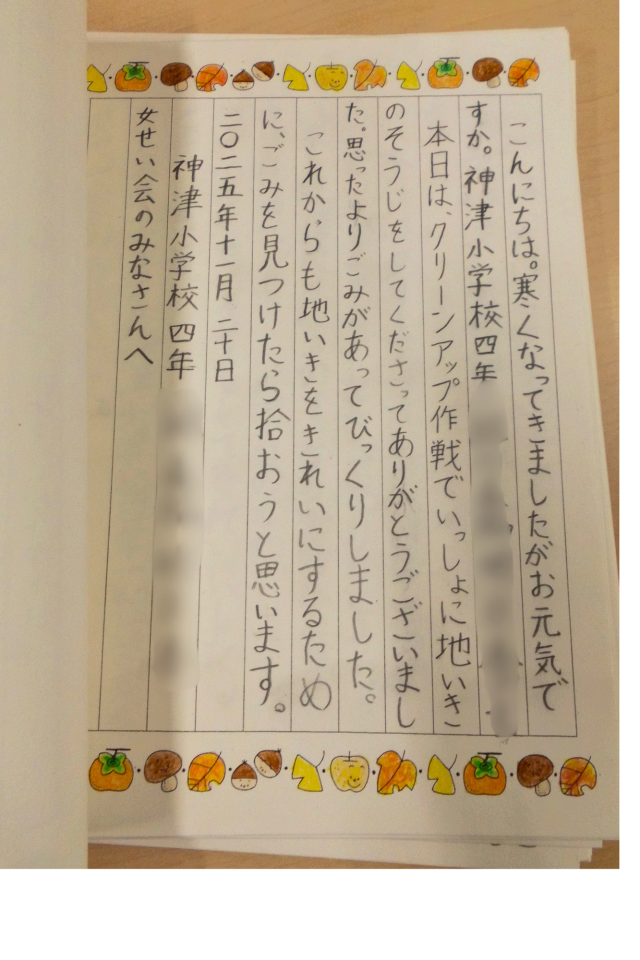 こんにちは。寒くなってきましたがお元気で
すか。神津小学校四年
本日は、クリーンアップ作戦でいっしょに地いき
のそうじをしてくださってありがとうございまし
た。思ったよりごみがあってびっくりしました。
これからも地いきをきれいにするため
に、ごみを見つけたら拾おうと思います。
二〇二五年十一月二十日
神津小学校四年
女せい会のみなさんへ